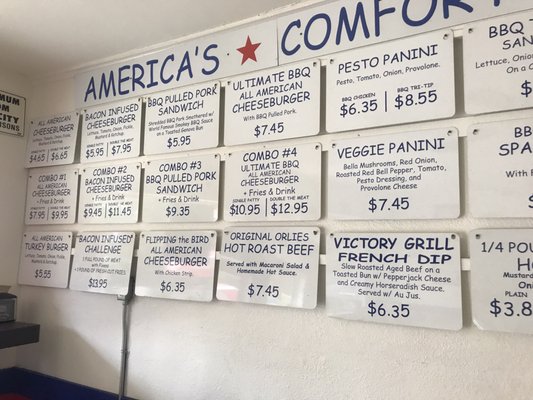 AMERICA'S COMFORT
All American
Cheeseburger
Lettuce, Tomato, Onion,
Mustard & Ketchup
$4.65 $6.65
Bacon Infused
Cheeseburger
Lettuce, Tomato, Onion
Mustard & Ketchup
$5.95 $7.95
BBQ Pulled Pork
Sandwich
Shredded BBQ Pork Smothered in
World Famous Smokey BBQ Sauce
on a Toasted Genova Bun
$5.95
Ultimate BBQ
All American
Cheeseburger
With BBQ Pulled Pork
$7.45
Pesto Panini
Pesto, Tomato, Onion, Provolone.
BBQ Chicken BBQ Tri-Tip
$6.35 $8.55
BBQ
San
Lettuce, Onion,
On a
$
Combo #1
All American
Cheeseburger
+ Fries & Drink
$7.95 $9.95
Combo #2
Bacon Infused
Cheeseburger
+ Fries & Drink
Single Patty Double the Meat
$9.45 $11.45
Combo #3
BBQ Pulled Pork
Sandwich
+ Fries & Drink
$9.35
Combo #4
Ultimate BBQ
All American
Cheeseburger
+ Fries & Drink
Single Patty Double the Meat
$10.95 $12.95
Veggie Panini
Bella Mushrooms, Red Onion,
Roasted Red Bell Pepper, Tomato,
Pesto Dressing, and
Provolone Cheese
$7.45
BB
Spa
With
$
Turkey Burger
Lettuce, Tomato, Onion,
Mustard & Ketchup
$5.55
Bacon Infused
Challenge
1 Pound of Meat
with Fixens
+ 1 Pound of Fresh Cut Fries.
$13.95
Flipping the Bird
All American
Cheeseburger
With Chicken Strip.
$6.35
Original Orlies
Hot Roast Beef
Served with Macaroni
Salad & Homemade Hot Sauce.
$7.45
Victory Grill
French Dip
Slow Roasted Aged Beef on a
Toasted Bun w/ Pepperjack Cheese
and Creamy Horseradish Sauce.
Served w/ Au Jus.
$6.35
1/4 Pou
Ho
Mustard
On
Plain
$3.8